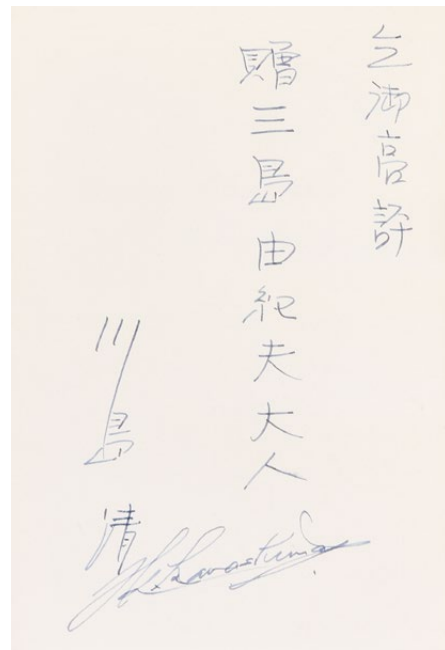 乞御高評
贈三島由紀夫大人
川島 清
Kawashima